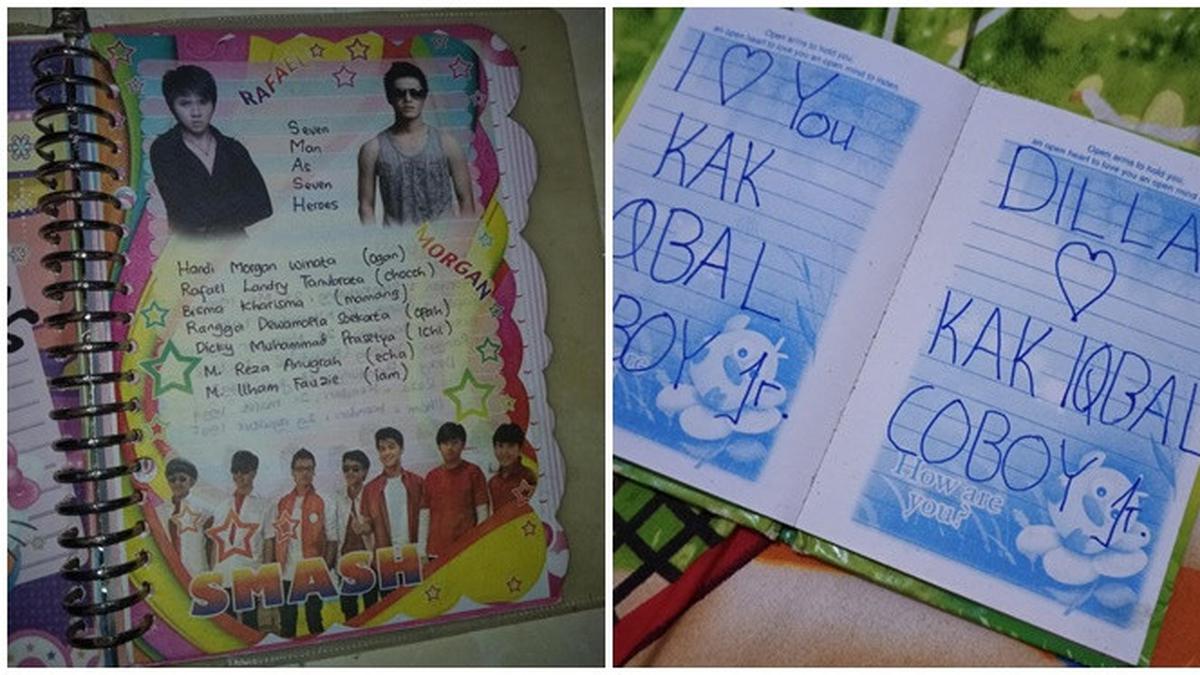 RAFAEL
Seven
Man
As
Seven
Heroes
MORGAN
Handi Morgan Winata (ogan)
Rafael Landry Tanubrata (chocoh)
Bisma Kharisma (mamang)
Rangga Dewamoela Soekarta (opah)
Dicky Muhammad Prasetya (Ichi)
M. Reza Anugrah (echa)
M. Ilham Fauzie (iam)
SMASH
Open arms to hold you.
an open heart to love you an open mind to listen.
I ♡ You
KAK
IQBAL
BOY Jr.
Open arms to hold you.
an open heart to love you an open mind
DILLA
♡
KAK IQBAL
COBOY Jr
How are
you?